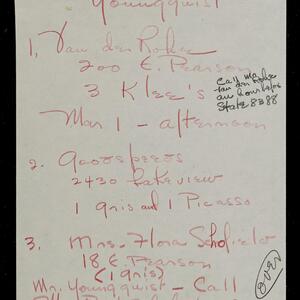 Youngquist
1. Van der Rohe
200 E. Pearson
3 Klee's
Call Mr.
van der Rohe
State 8388
Mar 1 - afternoon
2.
2430 Lakeview
1 Gris and 1 Picasso
3. Mrs. Flora Schofield
18 E. Pearson
(1 Gris)
Mr. Youngquist - Call
over